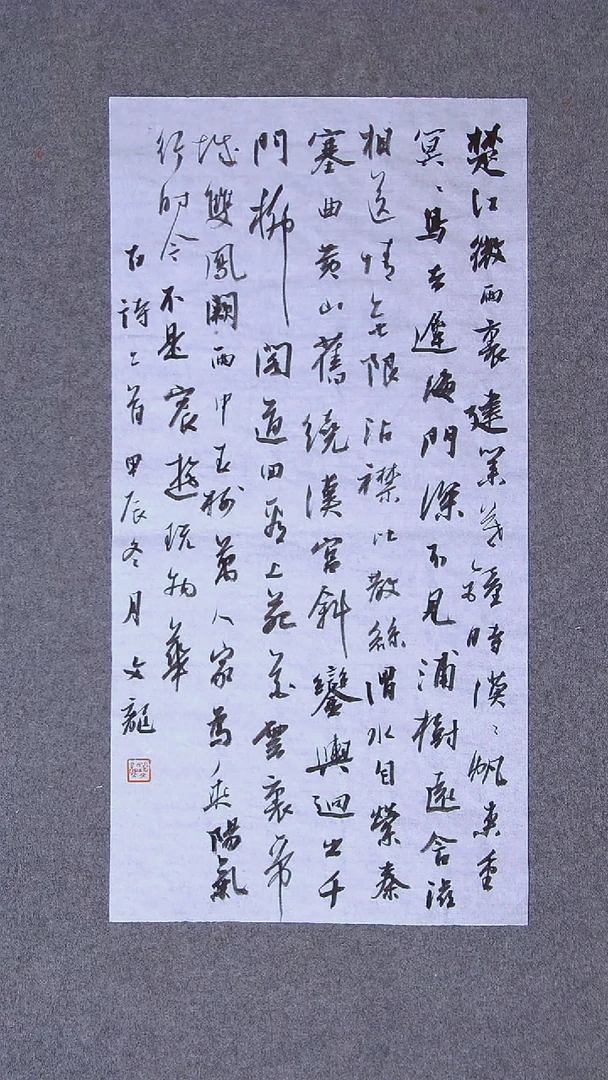 楚江微雨裏建業暮鐘時漠〻帆來重
冥〻鳥去遲海門深不見浦樹遠含滋
相送情無限沾襟比散絲渭水自縈秦
塞曲黃山舊繞漢宮斜鑾輿迴出千
門柳閣道回看上苑花雲裏帝
城雙鳳闕雨中春樹萬人家為乘陽氣
行時令不是宸遊玩物華
古詩二首甲辰冬月文龍